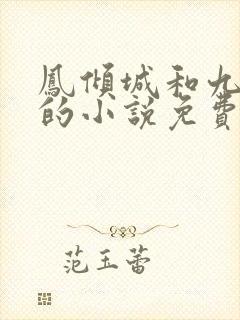 鳳傾城和九
的小說免費
范玉蕾